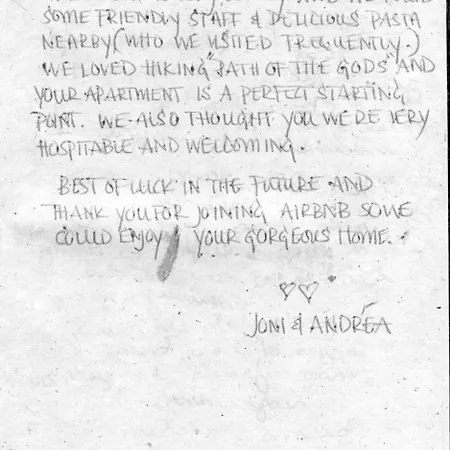 SOME FRIENDLY STAFF & DELICIOUS PASTA
NEARBY (WHO WE VISITED FREQUENTLY.)
WE LOVED HIKING "PATH OF THE GODS" AND
YOUR APARTMENT IS A PERFECT STARTING
POINT. WE ALSO THOUGHT YOU WERE VERY
HOSPITABLE AND WELCOMING.
BEST OF LUCK IN THE FUTURE AND
THANK YOU FOR JOINING AIRBNB SO WE
COULD ENJOY YOUR GORGEOUS HOME.
JONI & ANDRÉA